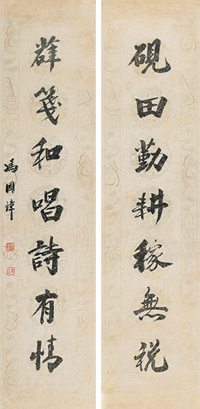 硯田勤耕稼無税
群箋和唱詩有情
馮國璋